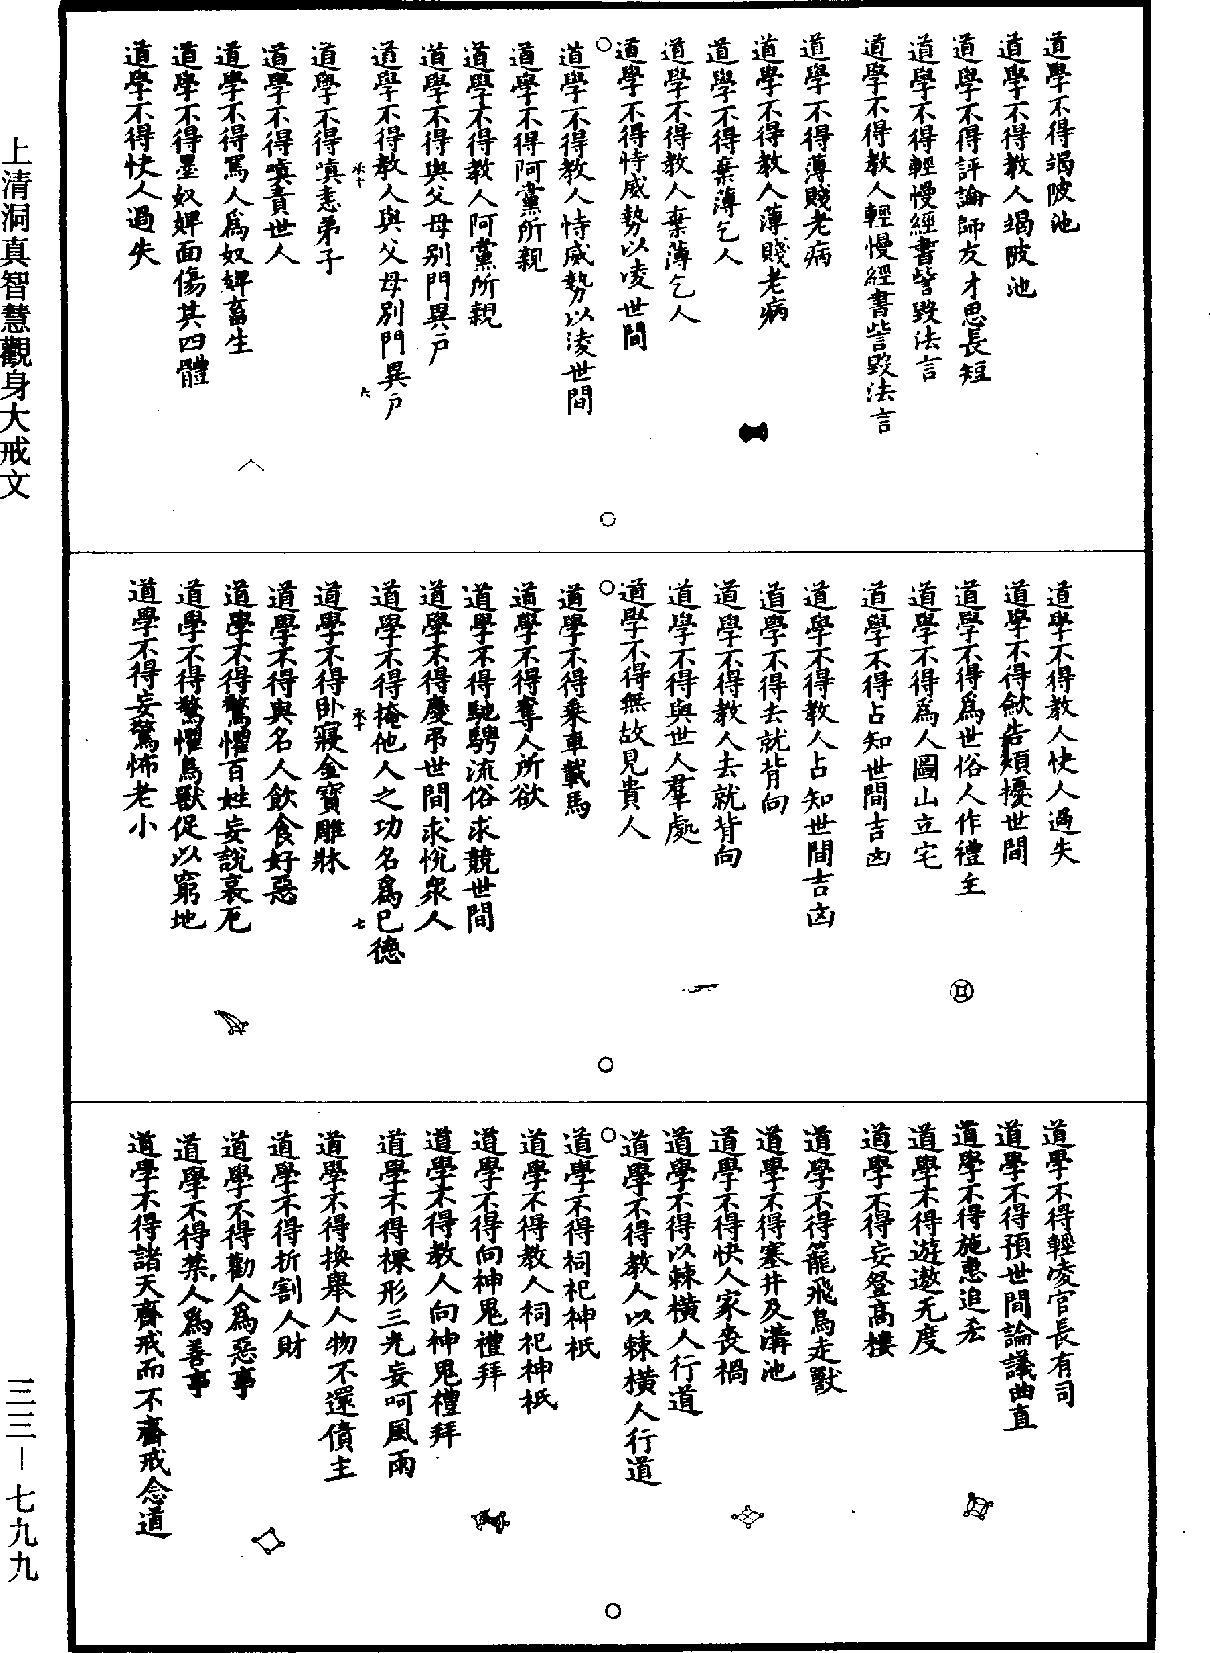 道學不得竭陂池
道學不得教人竭陂池
道學不得評論師友才思長短
道學不得輕慢經書訾毀法言
道學不得教人輕慢經書訾毀法言
道學不得薄賤老病
道學不得教人薄賤老病
道學不得棄薄乞人
道學不得教人棄薄乞人
道學不得恃威勢以凌世間
道學不得教人恃威勢以淩世間
道學不得阿黨所親
道學不得教人阿黨所親
道學不得與父母别門異戶
道學不得教人與父母別門異戶
道學不得嗔恚弟子
道學不得嗔責世人
道學不得罵人爲奴婢畜生
道學不得墨奴婢面傷其四體
道學不得快人過失
道學不得教人快人過失
道學不得歛告煩擾世間
道學不得爲世俗人作禮主
道學不得爲人圖山立宅
道學不得占知世間吉凶
道學不得教人占知世間吉凶
道學不得去就背向
道學不得教人去就背向
道學不得與世人羣處
道學不得無故見貴人
道學不得乘車載馬
道學不得奪人所欲
道學不得馳騁流俗求競世間
道學不得慶吊世間求悅衆人
道學不得掩他人之功名爲已德
道學不得卧寢金寶雕牀
道學不得與名人飲食好惡
道學不得驚懼百姓妄說衰厄
道學不得驚懼鳥獸促以窮地
道學不得妄驚怖老小
道學不得輕凌官長有司
道學不得預世間論議曲直
道學不得施惠追悉
道學不得遊遨无度
道學不得妄登高樓
道學不得籠飛鳥走獸
道學不得塞井及溝池
道學不得快人家喪禍
道學不得以棘橫人行道
道學不得教人以棘橫人行道
道學不得祠祀神祇
道學不得教人祠祀神祇
道學不得向神鬼禮拜
道學不得教人向神鬼禮拜
道學不得裸形三光妄呵風雨
道學不得換舉人物不還債主
道學不得折割人財
道學不得勸人爲惡事
道學不得禁人爲善事
道學不得諸天齋戒而不齋戒念道
上清洞真智慧觀身大戒文
三三—七九九